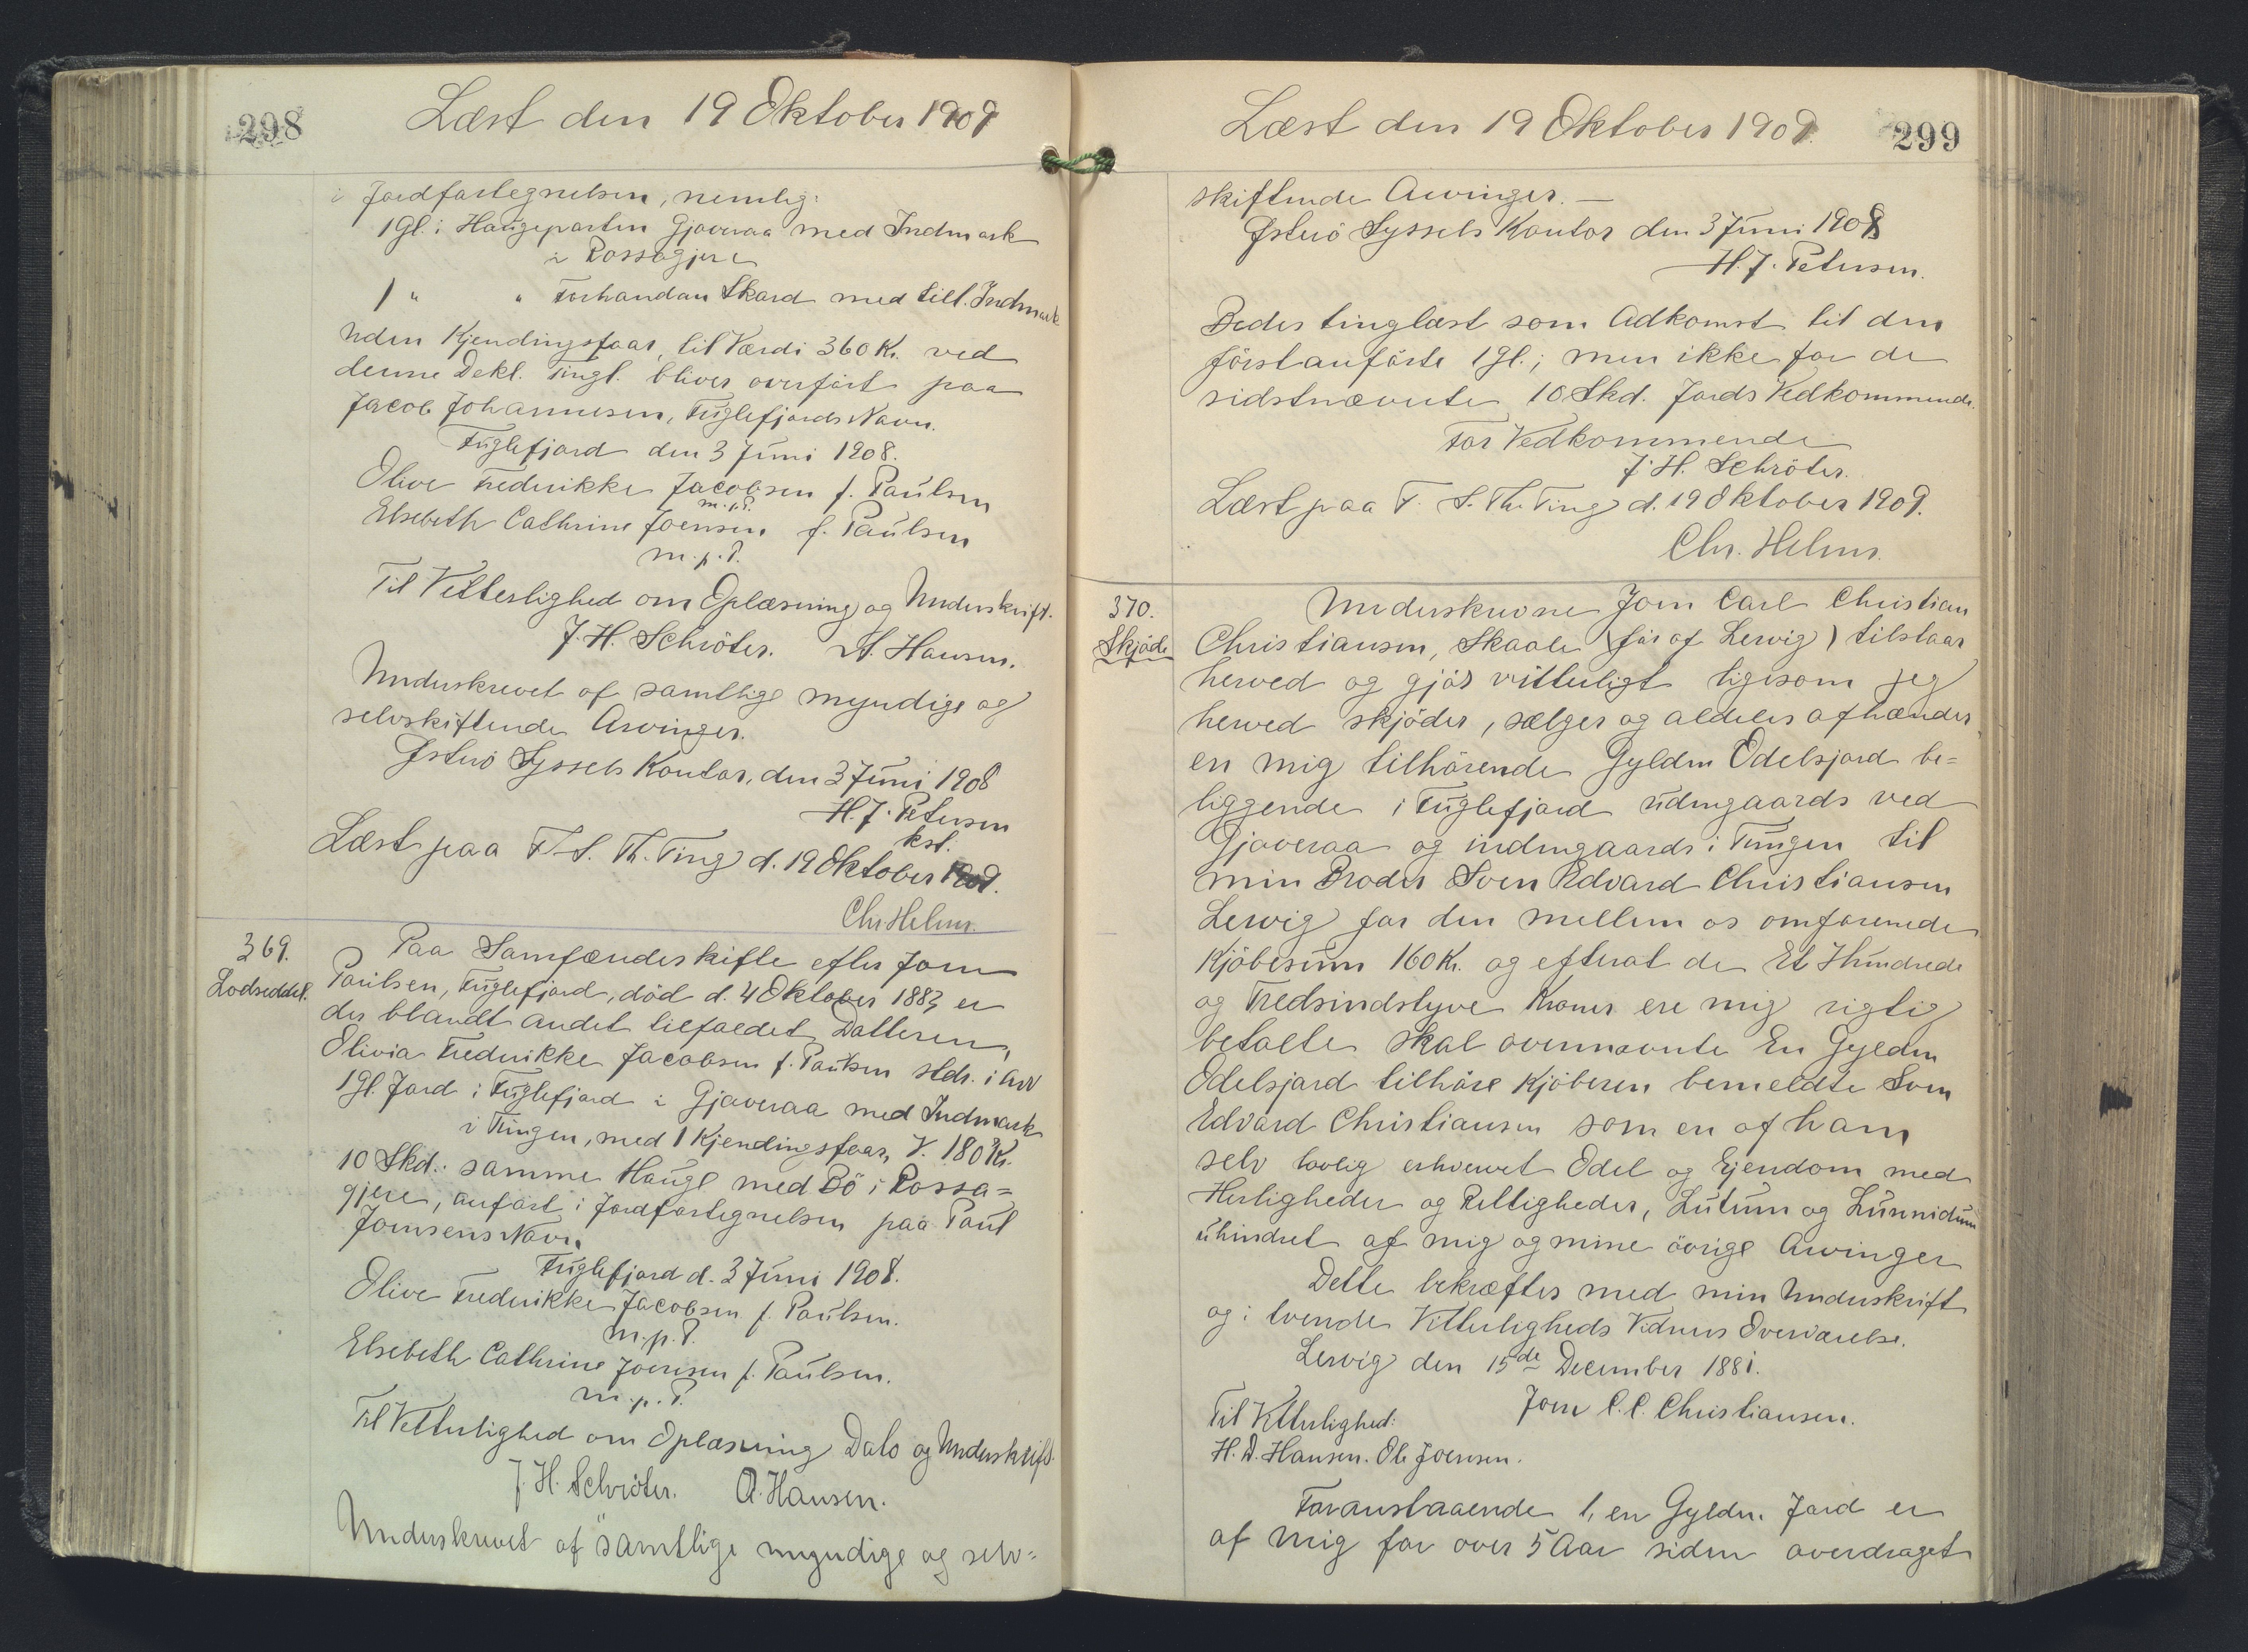 298
Læst den 19 Oktober 1909
i Jordfortegnelsen, nemlig:
1 Gl. i Haugeparten Gjaveraa med Indmark
i Rossagjere
1 " " Forhandan Skard med till. Indmark
uden Kjendingsfaar, til Værdi 360 Kr. ved
denne Dekl. Tingl. bliver overført paa
Jacob Johannesen, Fuglefjords Navn.
Fuglefjord den 3 Juni 1908.
Olive Frederikke Jacobsen f. Paulsen
m.p.P.
Elsebeth Cathrine Joensen f. Paulsen
m.p.P.
Til Vitterlighed om Oplæsning og Underskrift.
J. H. Schröter. A. Hansen.
Underskrevet af samtlige myndige og
selvskiftende Arvinger.
Østerø Syssels Kontor, den 3 Juni 1908
H. J. Petersen
kst.
Læst paa F. S. Th. Ting d. 19 Oktober 1909.
Chr. Helms.
369.
Lodseddel.
Paa Samfændeskifte efter Joen
Paulsen, Fuglefjord, död d. 4 Oktober 1883, er
der blandt andet tilfaldet Datteren,
Olivia Frederikke Jacobsen f. Paulsen stdr. i Arv
1 Gl. Jord i Fuglefjord i Gjaveraa med Indmark
i Tungen, med 1 Kjendingsfaar, V. 180 Kr.
10 Skd. i samme Hauge med Bö i Rossa=
gjere, anført i Jordfortegnelsen paa Paul
Joensens Navn.
Fuglefjord d. 3 Juni 1908.
Olive Frederikke Jacobsen f. Paulsen.
m.p.P.
Elsebeth Cathrine Joensen f. Paulsen.
m.p.P.
Til Vitterlighed om Oplæsning, Dato og Underskrift.
J. H. Schröter. A. Hansen.
Underskrevet af samtlige myndige og selv=
Læst den 19 Oktober 1909. 299
skiftende Arvinger. —
Østerö Syssels Kontor den 3 Juni 1908
H. J. Petersen.
Bedes tinglæst som Adkomst til den
förstanförte 1 Gl.; men ikke for de
sidstnævnte 10 Skd. Jords Vedkommende.
For Vedkommende
J. H. Schröter.
Læst paa F. S. Th. Ting d. 19 Oktober 1909.
Chr. Helms.
370.
Skjöde
Underskrevne Joen Carl Christian
Christiansen, Skaale (för af Lervig) tilstaar
herved og gjör vitterligt ligesom jeg
herved skjöder, sælger og aldeles afhænder
en mig tilhörende Gylden Odelsjord be=
liggende i Fuglefjord udengaards ved
Gjaveraa og indengaards i Tungen til
min Broder Sven Edvard Christiansen
Lervig for den mellem os omforenede
Kjöbesum 160 Kr. og efterat de Et Hundrede
og Tredsindstyve Kroner ere mig rigtig
betalte skal ovennævnte En Gylden
Odelsjord tilhöre Kjöberen bemeldte Sven
Edvard Christiansen som en af ham
selv lovlig erhvervet Odel og Ejendom med
Herligheder og Rettigheder, Lutum og Lunnidum
uhindret af mig og mine övrige Arvinger
Dette bekræftes med min Underskrift
og i tvende Vitterligheds Vidners Overværelse.
Lervig den 15de December 1881.
Joen C. C. Christiansen.
Til Vitterlighed:
H. D. Hansen. Ole Joensen.
Foranstaaende 1, en Gylden Jord er
af mig for over 5 Aar siden overdraget